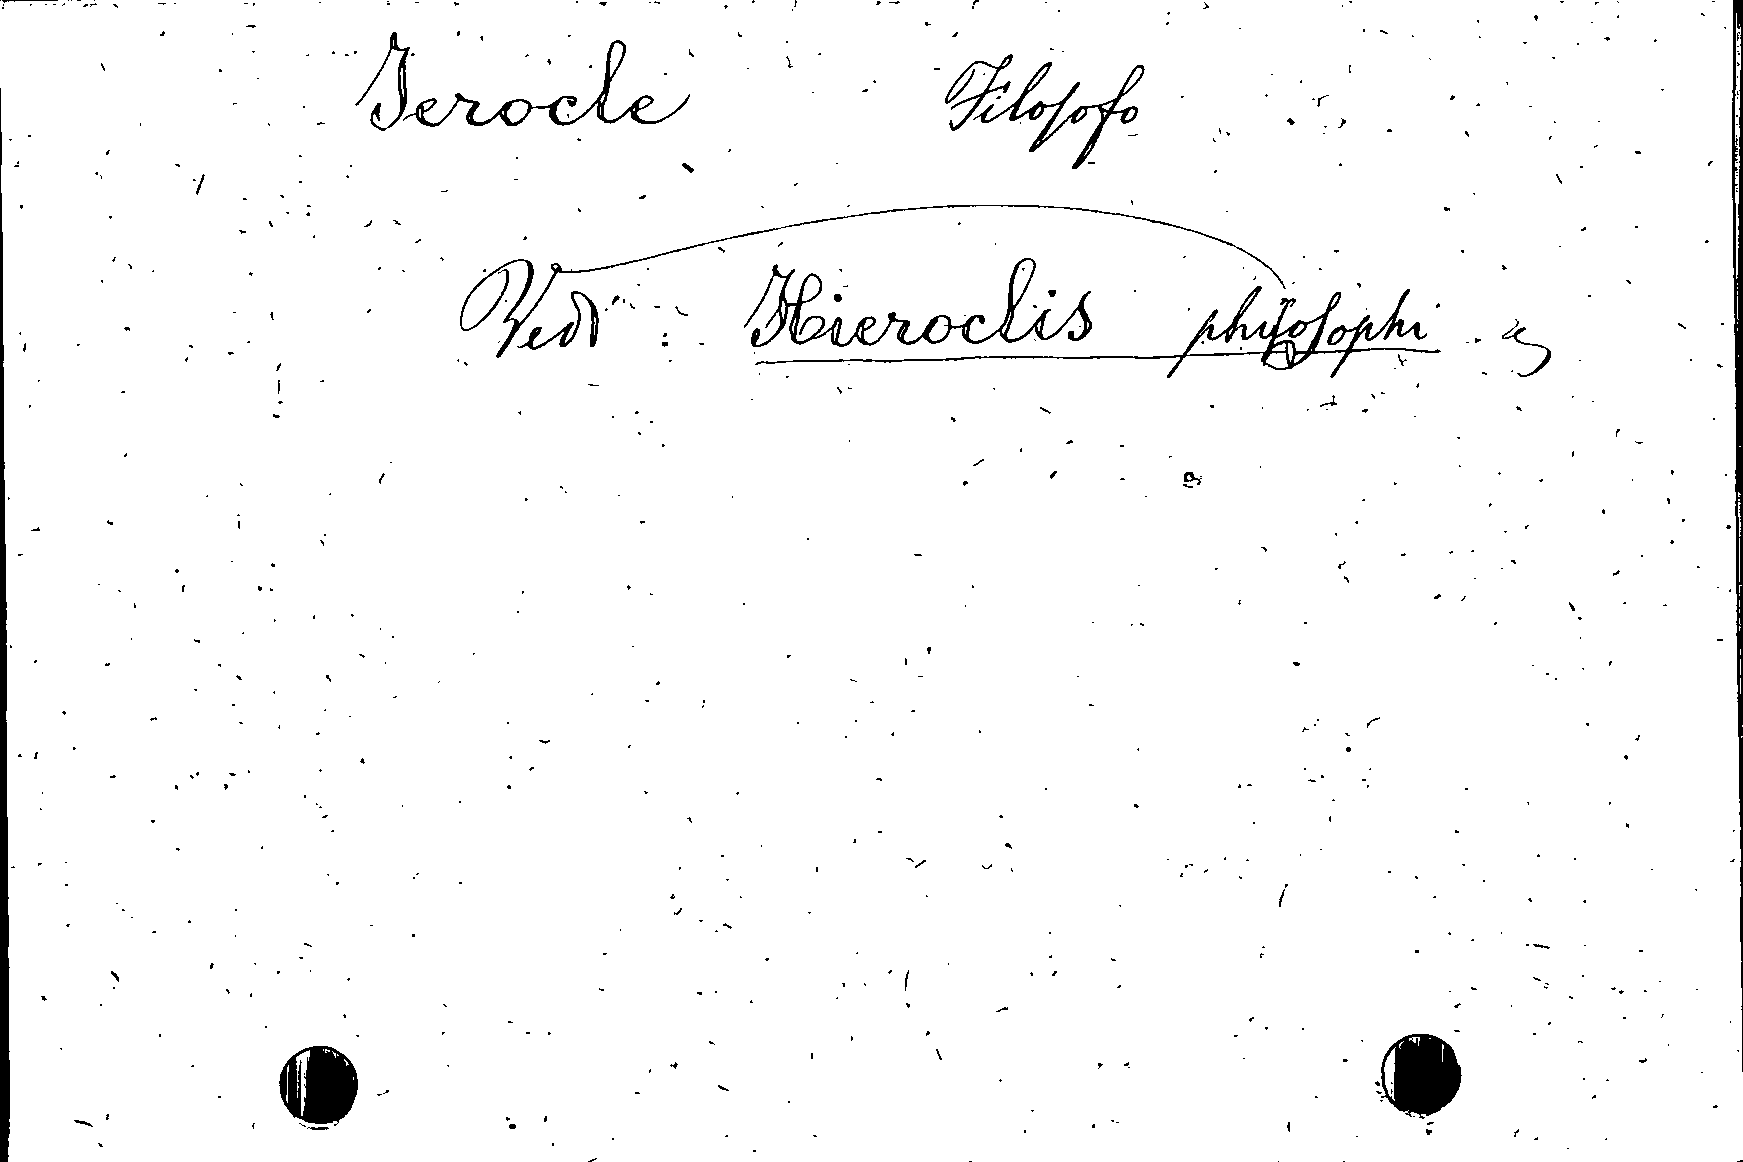 Ierocle Filosofo
Vedi : Hieroclis philosophi